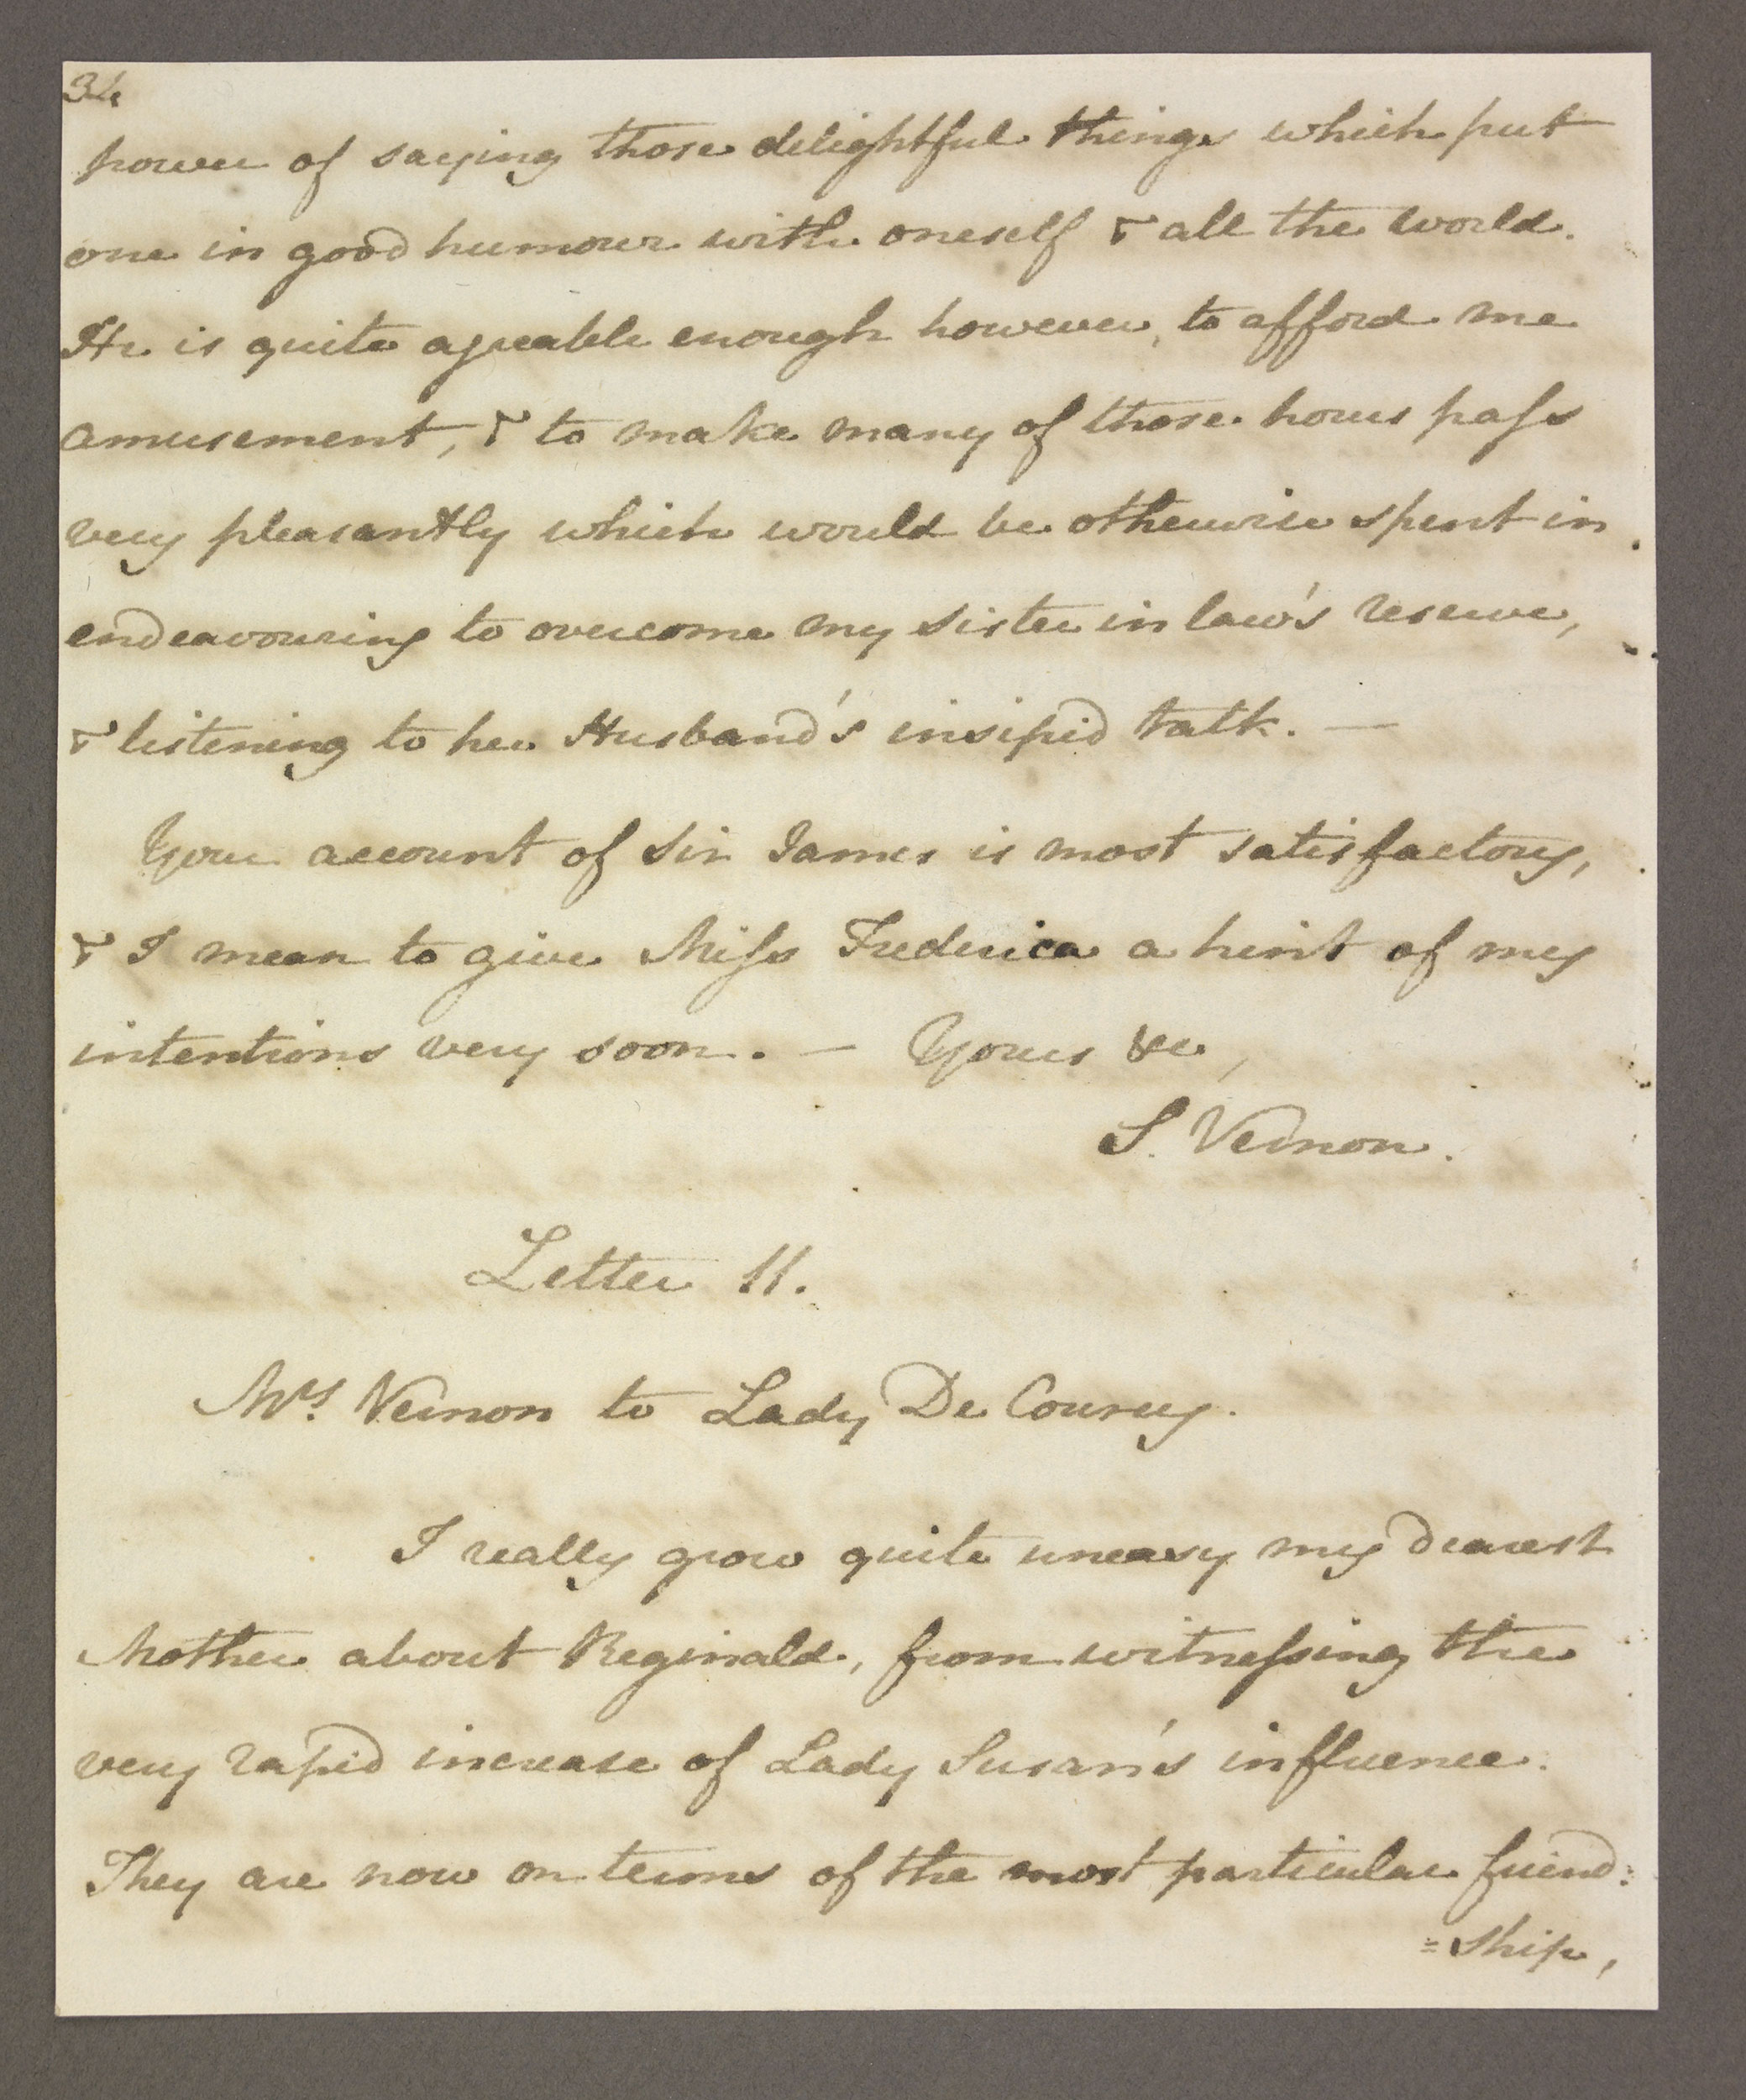 34
power of saying those delightful things which put
one in good humour with oneself & all the world.
He is quite agreable enough however, to afford me
amusement, & to make many of those hours paſs
very pleasantly which would be otherwise spent in
endeavouring to overcome my sister in law's reserve,
& listening to her Husband's insipid talk. —
Your account of Sir James is most satisfactory,
& I mean to give Miſs Frederica a hint of my
intentions very soon. — Yours &c,
S. Vernon.
Letter 11.
Mrs. Vernon to Lady De Courcy.
I really grow quite uneasy my dearest
Mother about Reginald, from witneſsing the
very rapid increase of Lady Susan's influence.
They are now on terms of the most particular friend:
=ship,